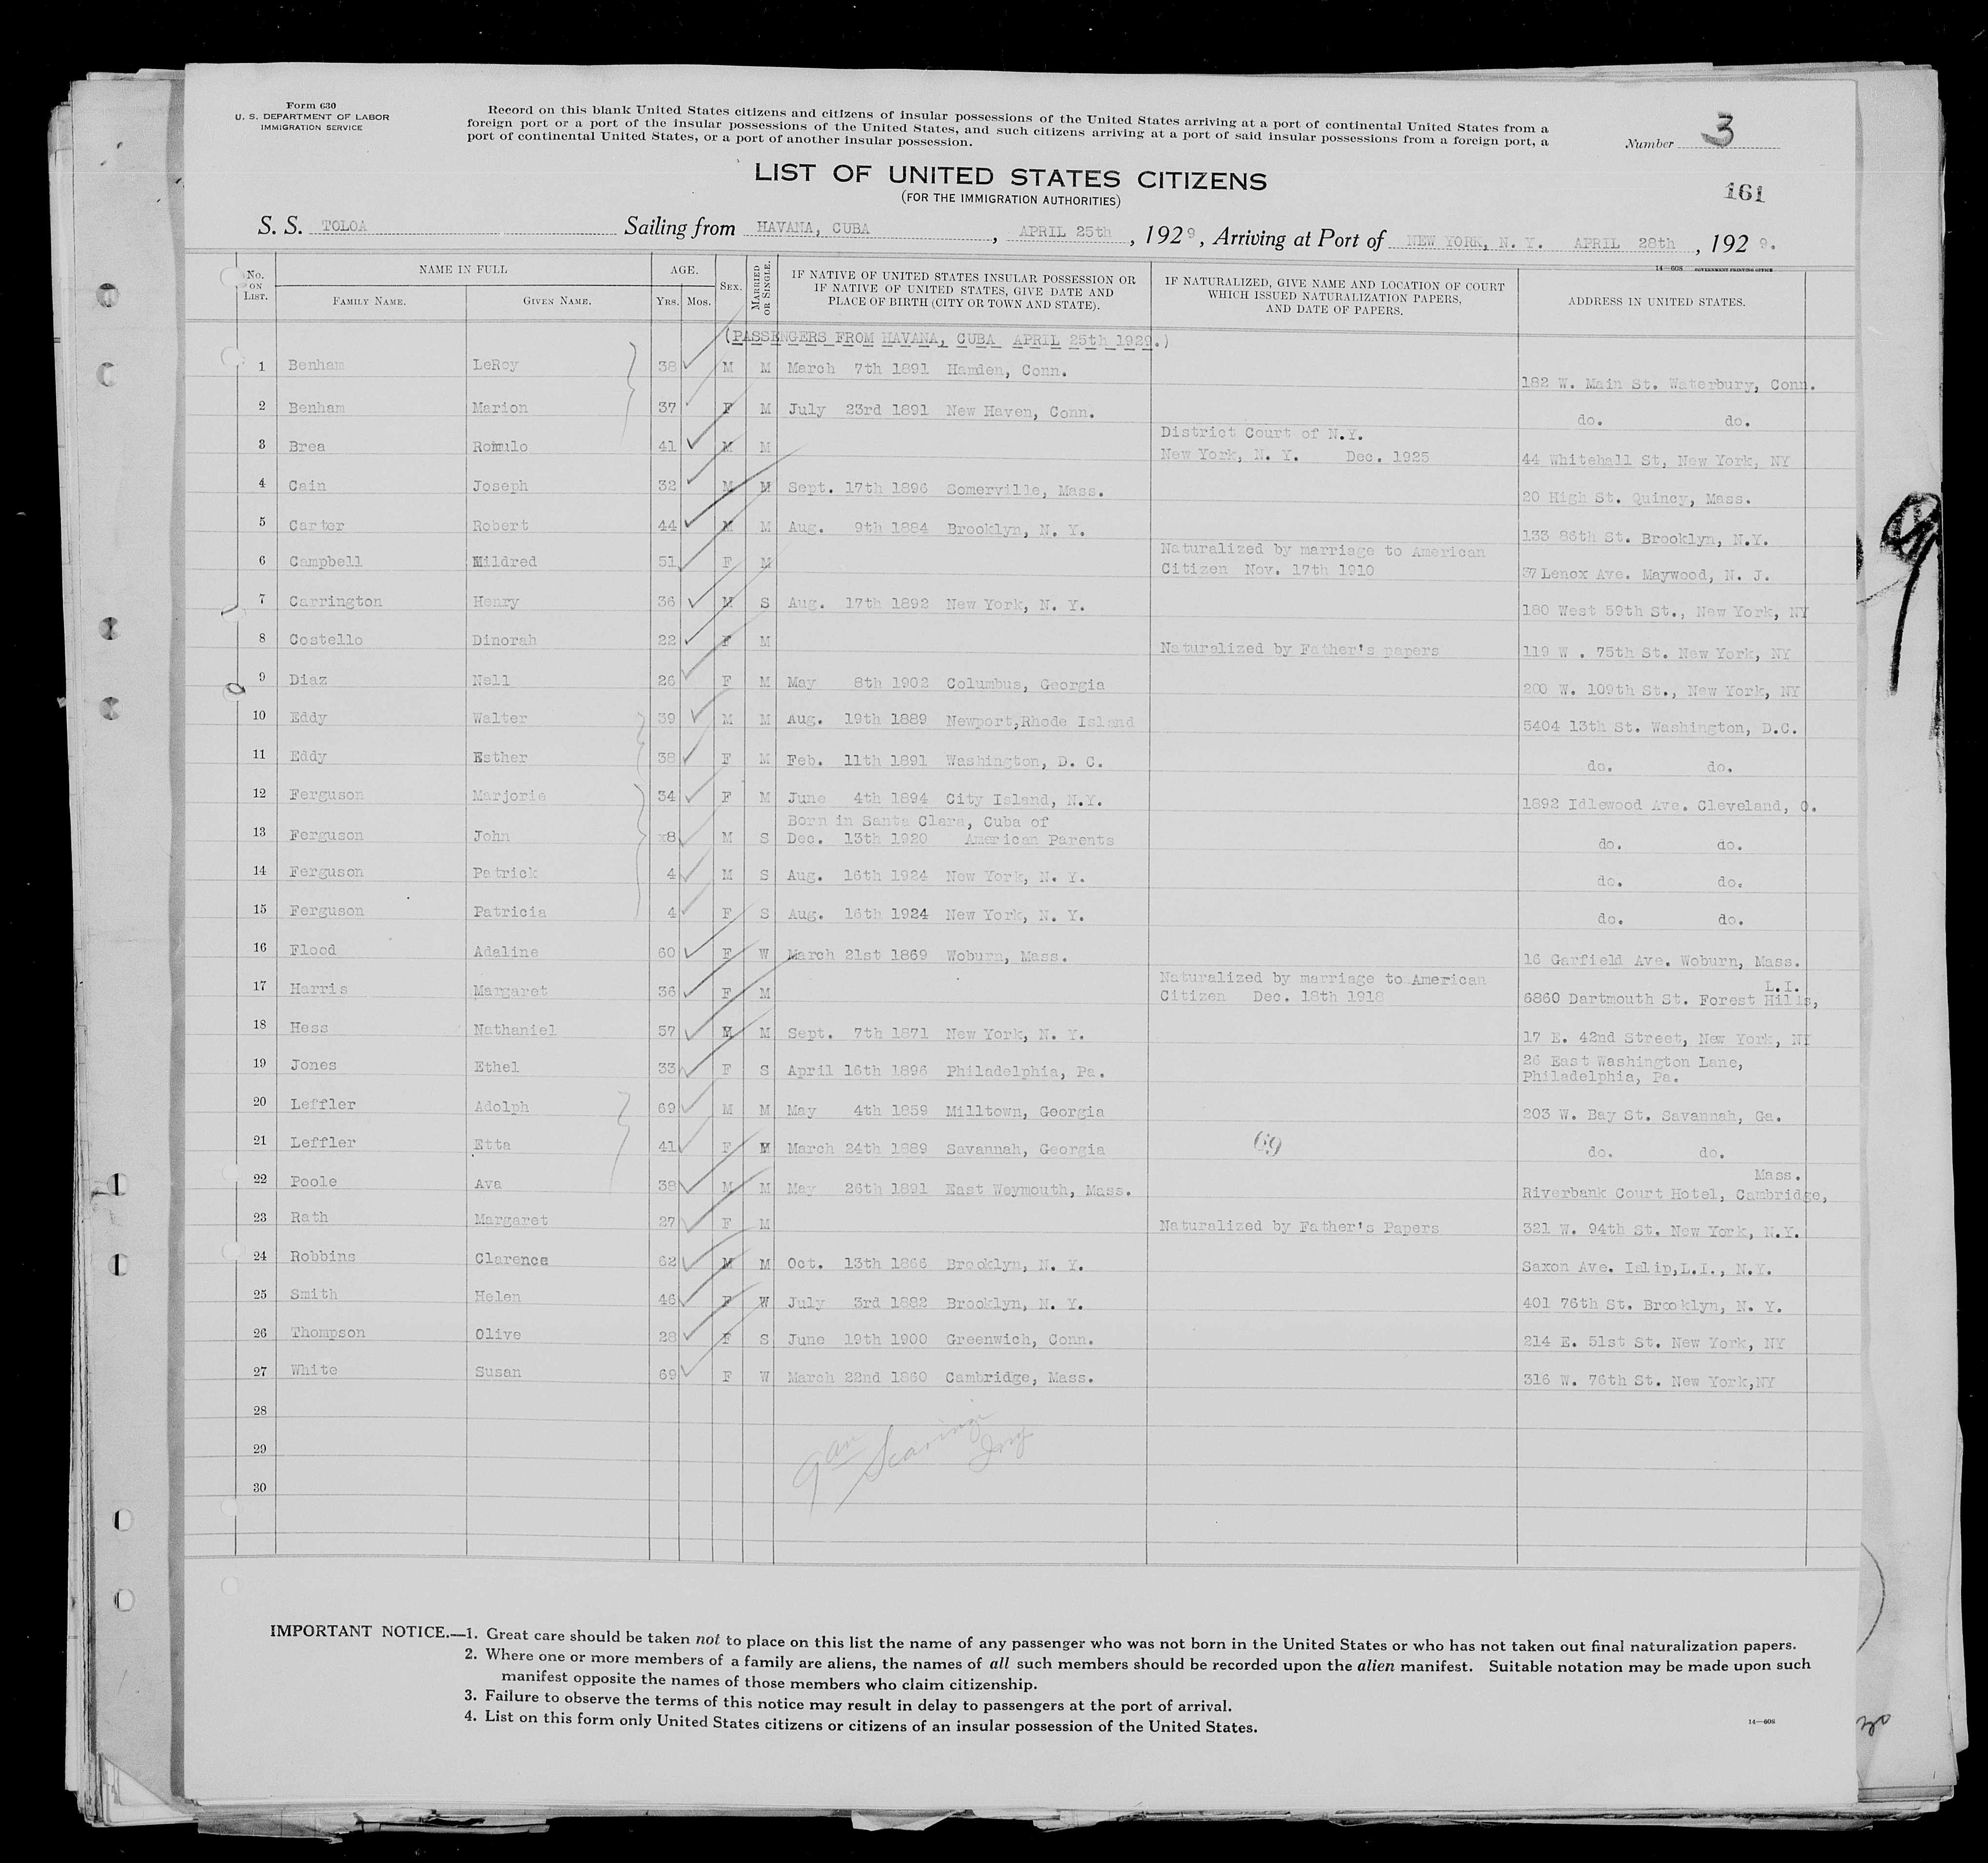 Form 630
U. S. DEPARTMENT OF LABOR
IMMIGRATION SERVICE
Record on this blank United States citizens and citizens of insular possessions of the United States arriving at a port of continental United States from a
foreign port or a port of the insular possessions of the United States, and such citizens arriving at a port of said insular possessions from a foreign port, a
port of continental United States, or a port of another insular possession.
Number 3
LIST OF UNITED STATES CITIZENS
(FOR THE IMMIGRATION AUTHORITIES)
161
S. S. TOLOA Sailing from HAVANA, CUBA, APRIL 25th, 1929, Arriving at Port of NEW YORK, N. Y. APRIL 28th, 1929.
14—608 GOVERNMENT PRINTING OFFICE
No. ON LIST. NAME IN FULL FAMILY NAME. GIVEN NAME. AGE. YRS. MOS. SEX. MARRIED OR SINGLE. IF NATIVE OF UNITED STATES INSULAR POSSESSION OR IF NATIVE OF UNITED STATES, GIVE DATE AND PLACE OF BIRTH (CITY OR TOWN AND STATE). IF NATURALIZED, GIVE NAME AND LOCATION OF COURT WHICH ISSUED NATURALIZATION PAPERS, AND DATE OF PAPERS. ADDRESS IN UNITED STATES.
(PASSENGERS FROM HAVANA, CUBA APRIL 25th 1929.)
1 Benham LeRoy 38 M M March 7th 1891 Hamden, Conn. 182 W. Main St. Waterbury, Conn.
2 Benham Marion 37 F M July 23rd 1891 New Haven, Conn. do. do.
3 Brea Romulo 41 M M District Court of N.Y. New York, N. Y. Dec. 1925 44 Whitehall St, New York, NY
4 Cain Joseph 32 M M Sept. 17th 1896 Somerville, Mass. 20 High St. Quincy, Mass.
5 Carter Robert 44 M M Aug. 9th 1884 Brooklyn, N. Y. 133 86th St. Brooklyn, N.Y.
6 Campbell Mildred 51 F M Naturalized by marriage to American Citizen Nov. 17th 1910 37 Lenox Ave. Maywood, N. J.
7 Carrington Henry 36 M S Aug. 17th 1892 New York, N. Y. 180 West 59th St., New York, NY
8 Costello Dinorah 22 F M Naturalized by Father's papers 119 W . 75th St. New York, NY
9 Diaz Nell 26 F M May 8th 1902 Columbus, Georgia 200 W. 109th St., New York, NY
10 Eddy Walter 39 M M Aug. 19th 1889 Newport,Rhode Island 5404 13th St. Washington, D.C.
11 Eddy Esther 38 F M Feb. 11th 1891 Washington, D. C. do. do.
12 Ferguson Marjorie 34 F M June 4th 1894 City Island, N.Y. 1892 Idlewood Ave. Cleveland, O.
13 Ferguson John x8 M S Born in Santa Clara, Cuba of Dec. 13th 1920 American Parents do. do.
14 Ferguson Patrick 4 M S Aug. 16th 1924 New York, N. Y. do. do.
15 Ferguson Patricia 4 F S Aug. 16th 1924 New York, N. Y. do. do.
16 Flood Adaline 60 F W March 21st 1869 Woburn, Mass. 16 Garfield Ave. Woburn, Mass.
17 Harris Margaret 36 F M Naturalized by marriage to American Citizen Dec. 18th 1918 6860 Dartmouth St. Forest Hills, L.I.
18 Hess Nathaniel 57 M M Sept. 7th 1871 New York, N. Y. 17 E. 42nd Street, New York, NY
19 Jones Ethel 33 F S April 16th 1896 Philadelphia, Pa. 26 East Washington Lane, Philadelphia, Pa.
20 Leffler Adolph 69 M M May 4th 1859 Milltown, Georgia 203 W. Bay St. Savannah, Ga.
21 Leffler Etta 41 F M March 24th 1889 Savannah, Georgia 69 do. do.
22 Poole Ava 38 M M May 26th 1891 East Weymouth, Mass. Riverbank Court Hotel, Cambridge, Mass.
23 Rath Margaret 27 F M Naturalized by Father's Papers 321 W. 94th St. New York, N.Y.
24 Robbins Clarence 62 M M Oct. 13th 1866 Brooklyn, N. Y. Saxon Ave. Islip,L.I., N.Y.
25 Smith Helen 46 F W July 3rd 1882 Brooklyn, N. Y. 401 76th St. Brooklyn, N. Y.
26 Thompson Olive 28 F S June 19th 1900 Greenwich, Conn. 214 E. 51st St. New York, NY
27 White Susan 69 F W March 22nd 1860 Cambridge, Mass. 316 W. 76th St. New York,NY
28
29
30
IMPORTANT NOTICE.—1. Great care should be taken not to place on this list the name of any passenger who was not born in the United States or who has not taken out final naturalization papers.
2. Where one or more members of a family are aliens, the names of all such members should be recorded upon the alien manifest. Suitable notation may be made upon such
manifest opposite the names of those members who claim citizenship.
3. Failure to observe the terms of this notice may result in delay to passengers at the port of arrival.
4. List on this form only United States citizens or citizens of an insular possession of the United States.
14—608